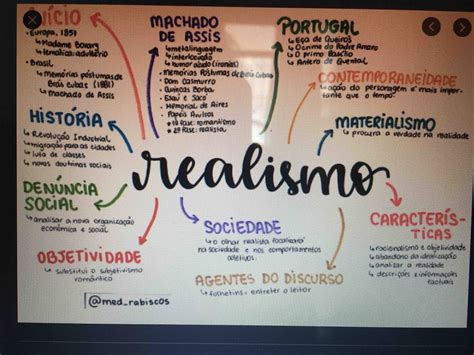 INÍCIO
• Europa, 1857
↳ Madame Bovary
↳ temática: adultério
• Brasil
↳ memórias póstumas de
Brás Cubas (1881)
↳ machado de Assis
MACHADO
DE ASSIS
↳ metalinguagem
↳ interlocução
↳ humor ácido (ironias)
• Memórias Póstumas de Brás Cubas
• Dom Casmurro
• Quincas Borba
• Esaú e Jacó
• Memorial de Aires
• Papéis Avulsos
* 1ª fase: romantismo
* 2ª fase: realista
PORTUGAL
↳ Eça de Queirós
↳ O crime do Padre Amaro
↳ O primo Basílio
↳ Antero de Quental
CONTEMPORANEIDADE
↳ ação do personagem é mais impor-
tante que o tempo
MATERIALISMO
↳ procura a verdade na realidade
HISTÓRIA
↳ Revolução Industrial
↳ migração para as cidades
↳ luta de classes
↳ novas doutrinas sociais
realismo
DENÚNCIA
SOCIAL
↳ analisar a nova organização
econômica e social
OBJETIVIDADE
↳ substitui o subjetivismo
romântico
SOCIEDADE
↳ o olhar realista focalizará
na sociedade e nos comportamentos
coletivos.
AGENTES DO DISCURSO
↳ folhetins: entreter o leitor
CARACTERÍS-
TICAS
↳ racionalismo e objetividade
↳ abandono da idealização
↳ analisar a realidade
↳ descrições e informações
factuais
@med_rabiscos